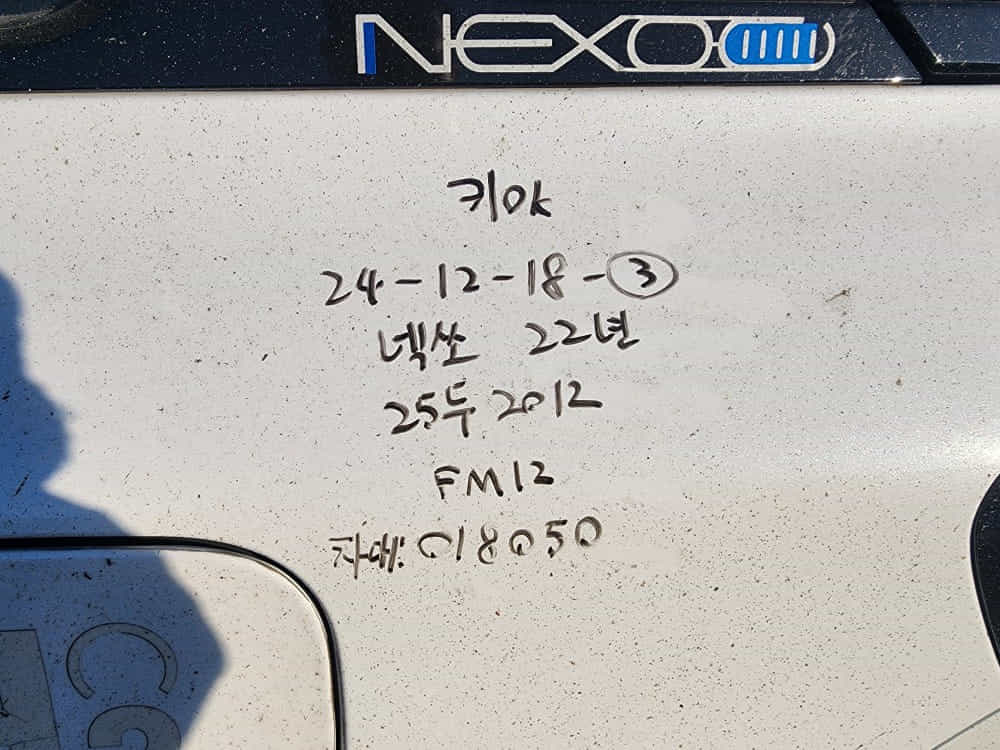 NEXO
키ok
24-12-18-③
넥쏘 22년
25두2012
FM12
차대: 018050
CG